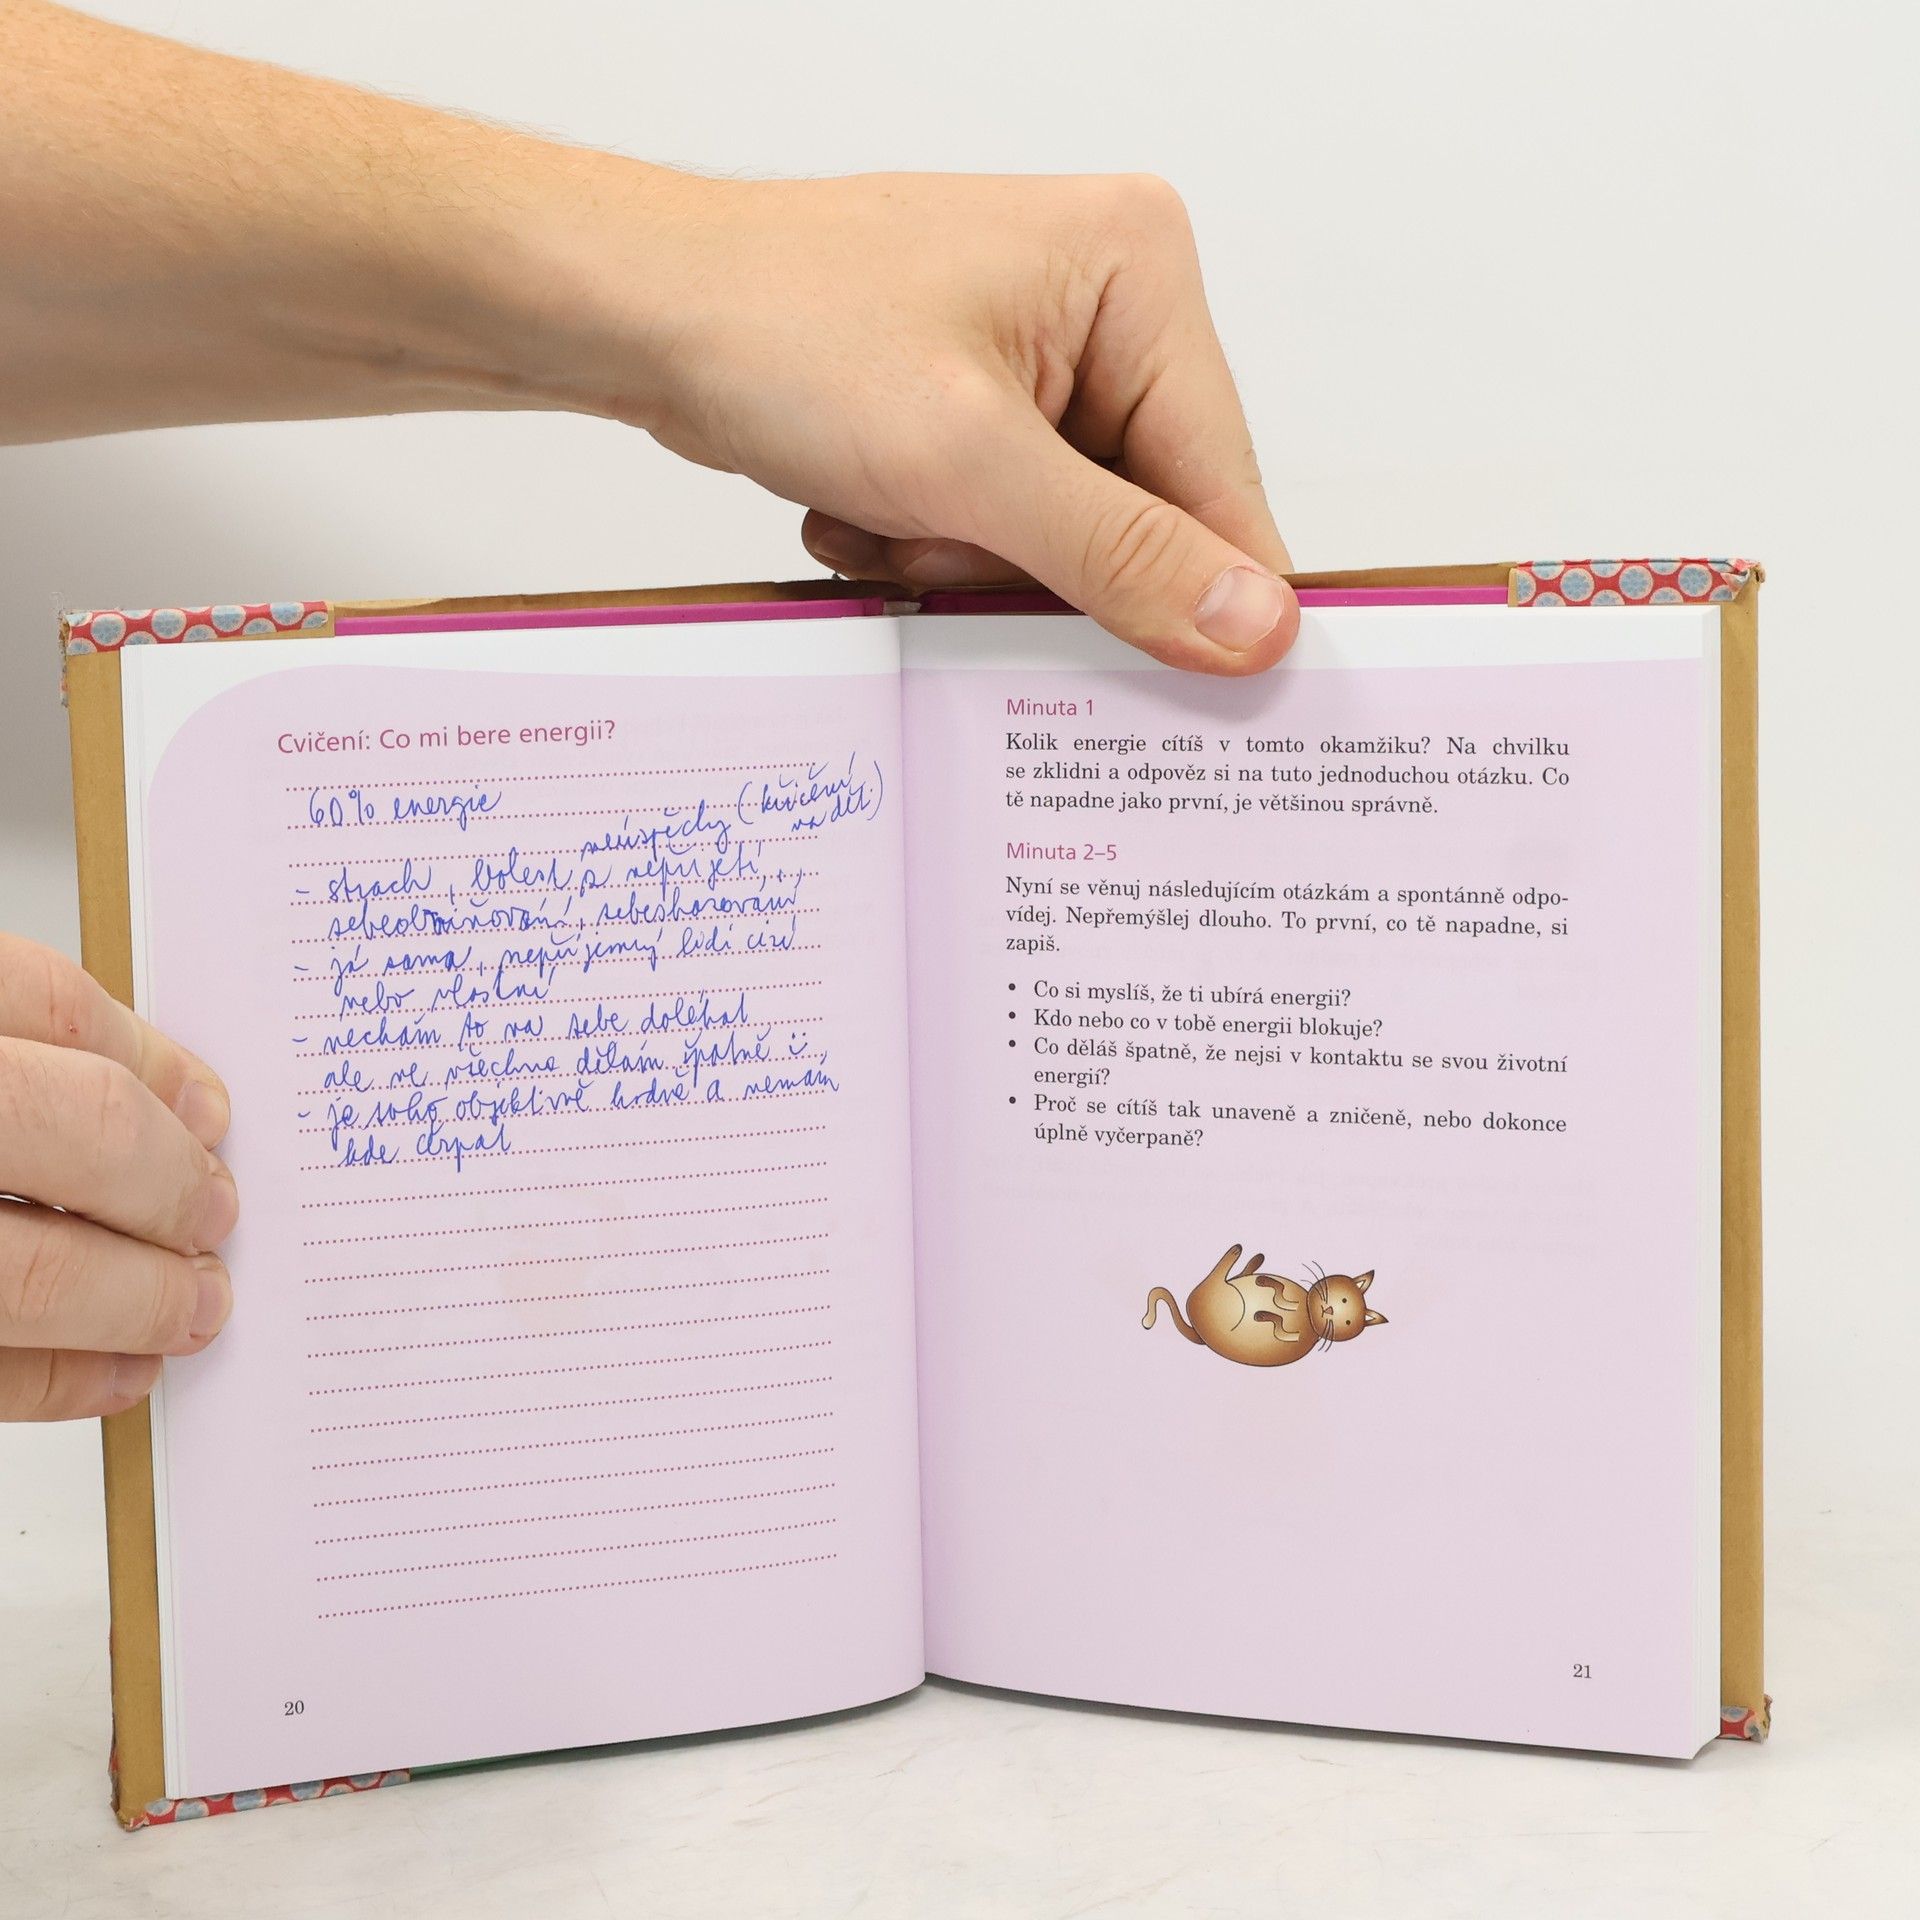 Cvičení: Co mi bere energii?
60% energie
neúspěchy (křičení
na děti)
- strach, bolest z nepřijetí,
sebeobviňování, sebeshazování
- já sama, nepříjemný lidi cizí
nebo vlastní
- nechám to na sebe doléhat
ale ve všechno dělám špatně :-
- je toho objektivně hodně a nemám
kde čerpat
20
Minuta 1
Kolik energie cítíš v tomto okamžiku? Na chvilku
se zklidni a odpověz si na tuto jednoduchou otázku. Co
tě napadne jako první, je většinou správně.
Minuta 2–5
Nyní se věnuj následujícím otázkám a spontánně odpo-
vídej. Nepřemýšlej dlouho. To první, co tě napadne, si
zapiš.
• Co si myslíš, že ti ubírá energii?
• Kdo nebo co v tobě energii blokuje?
• Co děláš špatně, že nejsi v kontaktu se svou životní
energií?
• Proč se cítíš tak unaveně a zničeně, nebo dokonce
úplně vyčerpaně?
21